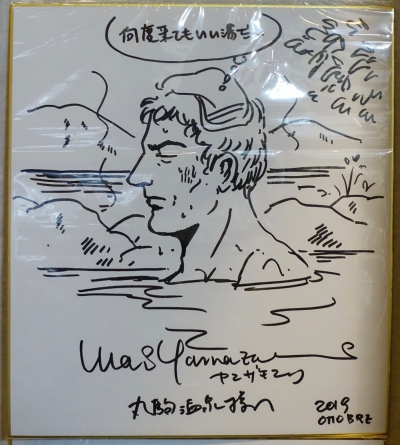 何度来てもいい湯だ
Mari Yamazaki
ヤマザキマリ
丸駒温泉様へ
2019
OTTOBRE